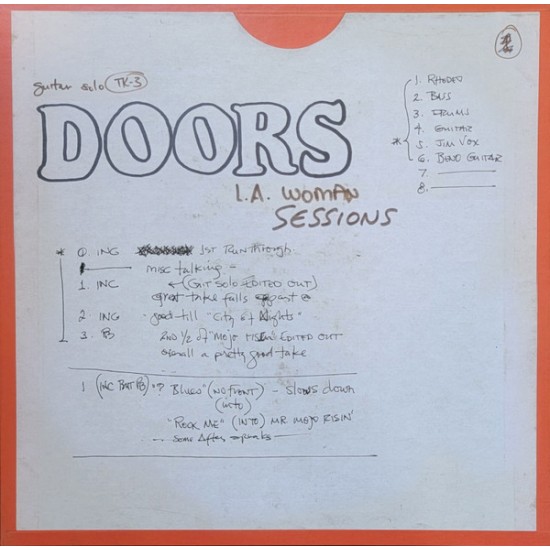 guitar solo TK-3
DOORS
L.A. WOMAN
SESSIONS
1. RHODES
2. BASS
3. DRUMS
4. GUITAR
* 5. JIM VOX
6. BEND GUITAR
7.
8.
* 0. INC 1ST RUNTHROUGH
misc talking
1. INC (GIT SOLO EDITED OUT)
great take falls apart @
2. INC good till "City of Nights"
3. 2ND 1/2 of "MOJO EDITED OUT
overall a pretty good take
1 (INC BUT "? BLUES" (NO FRONT) - Slows down
(INTO)
"ROCK ME" (INTO) MR MOJO RISIN'
some After